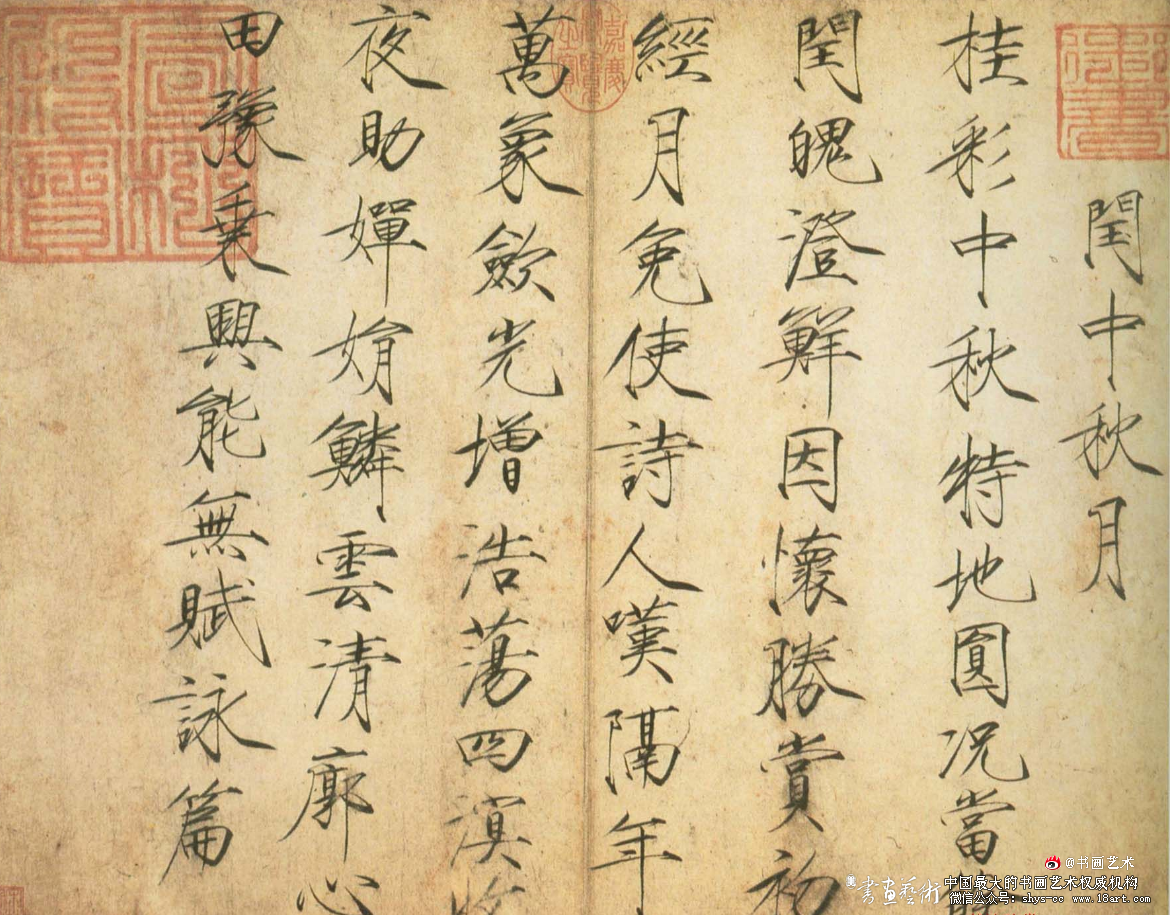 閏中秋月
桂彩中秋特地圓况當
閏魄澄鮮因懷勝賞初
經月免使詩人嘆隔年
萬象歛光增浩蕩四溟
夜助嬋娟鱗雲清廓心
田豫乗興能無賦詠篇
嘉慶御覽之寶
@书画艺术
書畫藝術
中国最大的书画艺术权威机构
微信公众号: shys-cc www.18art.com